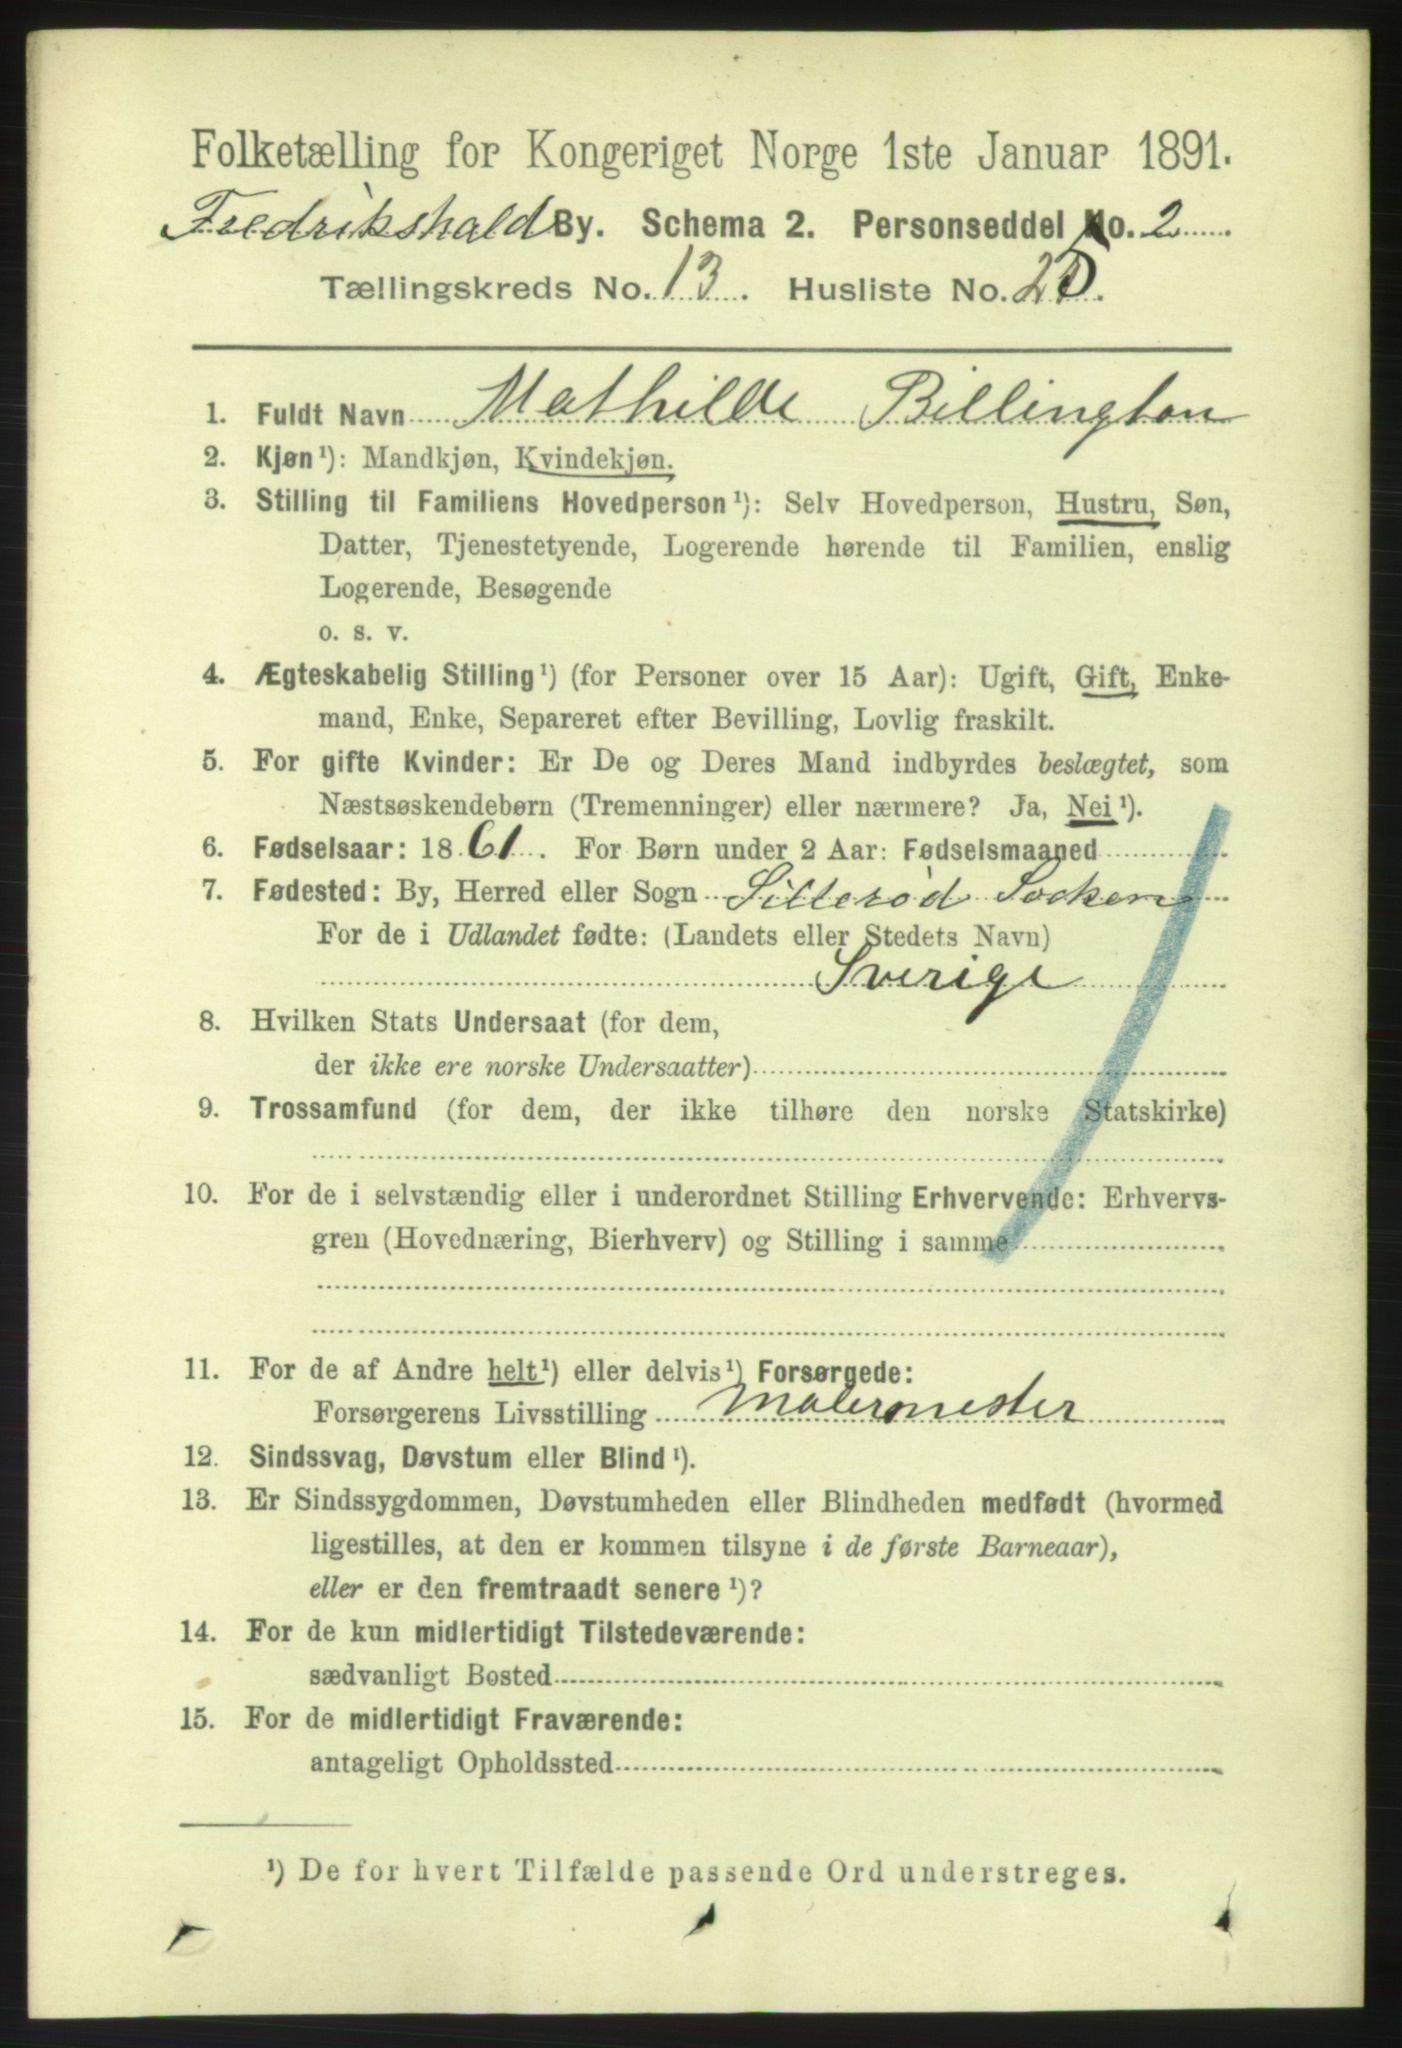 Folketælling for Kongeriget Norge 1ste Januar 1891.
Fredrikshald By. Schema 2. Personseddel No. 2
Tællingskreds No. 13. Husliste No. 25.
1. Fuldt Navn Mathilde Billington
2. Kjøn¹): Mandkjøn, Kvindekjøn.
3. Stilling til Familiens Hovedperson¹): Selv Hovedperson, Hustru, Søn,
Datter, Tjenestetyende, Logerende hørende til Familien, enslig
Logerende, Besøgende
o. s. v.
4. Ægteskabelig Stilling¹) (for Personer over 15 Aar): Ugift, Gift, Enke-
mand, Enke, Separeret efter Bevilling, Lovlig fraskilt.
5. For gifte Kvinder: Er De og Deres Mand indbyrdes beslægtet, som
Næstsøskendebørn (Tremenninger) eller nærmere? Ja, Nei¹).
6. Fødselsaar: 1861. For Børn under 2 Aar: Fødselsmaaned
7. Fødested: By, Herred eller Sogn Sillerød Socken
For de i Udlandet fødte: (Landets eller Stedets Navn)
Sverige
8. Hvilken Stats Undersaat (for dem,
der ikke ere norske Undersaatter)
9. Trossamfund (for dem, der ikke tilhøre den norske Statskirke)
10. For de i selvstændig eller i underordnet Stilling Erhvervende: Erhvervs-
gren (Hovednæring, Bierhverv) og Stilling i samme
11. For de af Andre helt¹) eller delvis¹) Forsørgede:
Forsørgerens Livsstilling Malermester
12. Sindssvag, Døvstum eller Blind¹).
13. Er Sindssygdommen, Døvstumheden eller Blindheden medfødt (hvormed
ligestilles, at den er kommen tilsyne i de første Barneaar),
eller er den fremtraadt senere¹)?
14. For de kun midlertidigt Tilstedeværende:
sædvanligt Bosted
15. For de midlertidigt Fraværende:
antageligt Opholdssted
¹) De for hvert Tilfælde passende Ord understreges.